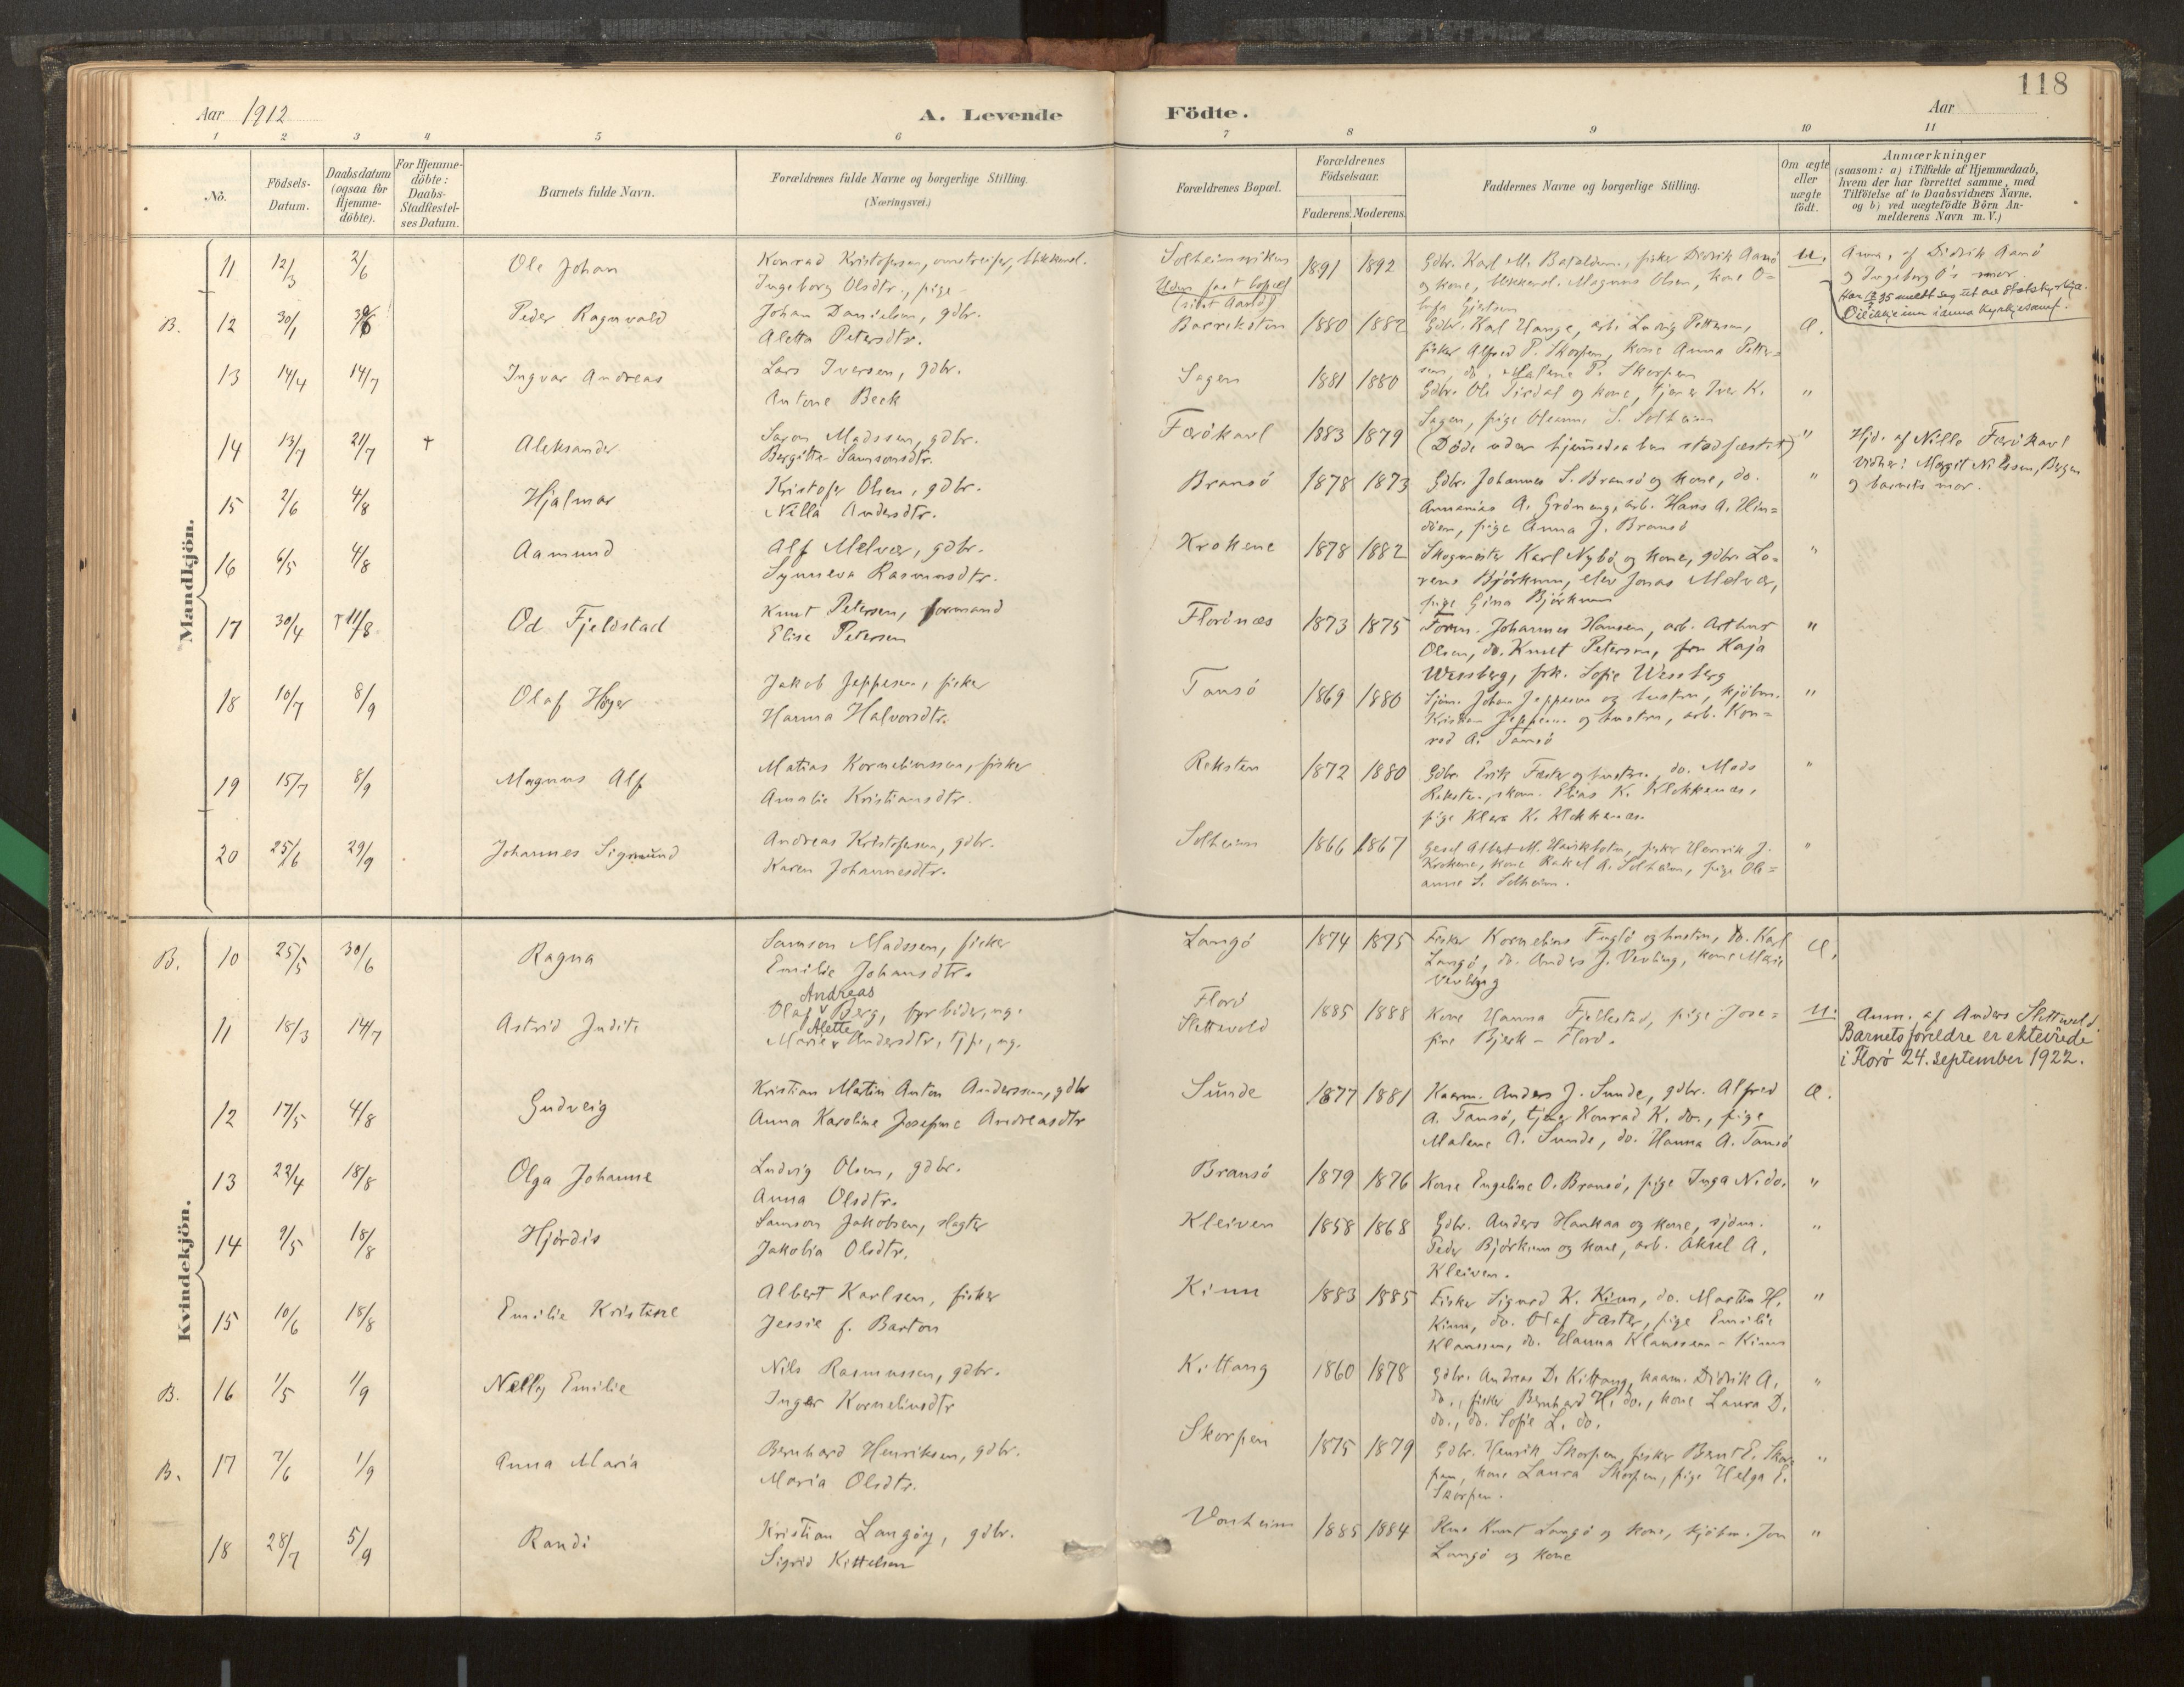 118
Aar 1912
A. Levende
Födte.
Aar
1 2 3 4 5 6 7 8 9 10 11
No.
Födsels-Datum.
Daabsdatum (ogsaa for Hjemme-döbte).
For Hjemme-döbte: Daabs-Stadfæstel-ses Datum.
Barnets fulde Navn.
Forældrenes fulde Navne og borgerlige Stilling.
(Næringsvei.)
Forældrenes Bopæl.
Forældrenes Födselsaar.
Faderens. Moderens.
Faddernes Navne og borgerlige Stilling.
Om ægte eller uægte födt.
Anmærkninger
(saasom: a) i Tilfælde af Hjemmedaab,
hvem der har forrettet samme, med
Tilföielse af to Daabsvidners Navne.
og b) ved uægtefödte Börn An-
melderens Navn m. V.)
Mandkjön.
11 12/3 2/6 Ole Johan
Konrad Kristofersen, omstreifer,
Ingeborg Olsdtr., pige
Solheimsviken
Uden fast bopæl
1891 1892
Gdbr. Karl M. Batalden, fisker Didrik Aanö
og kone, Magnus Olsen, kone
u.
Anm. af Didrik Aanö
og Ingeborg O's mor
B. 12 30/1 30/6 Peder Ragnvald
Johan Danielsen, gdbr.
Aletta Petersdtr.
Bareksten
1880 1882
Gdbr. Karl Hauge, arb. Ludvig Pettersen,
fisker Alfred P. Skorpen, kone Anna Petter-
sen, do. Malene P. Skorpen
Æ.
13 14/4 14/7 Ingvar Andreas
Lars Iversen, gdbr.
Antone Beck
Sagen
1881 1880
Gdbr. Ole Tirdal og kone, tjener Iver K.
Sagen, pige Oleanna S. Solheim
"
14 13/7 21/7 + Aleksander
Saron Madssen, gdbr.
Bergitte Samsonsdtr.
Færökarl
1883 1879
(Döde uden hjemmedaaben stadfæstet)
"
Hjd. af Nille Færökarl
Vidner: Margit Nilssen, Bergen
og barnets mor.
15 2/6 4/8 Hjalmar
Kristofer Olsen, gdbr.
Nilla Andersdtr.
Bransö
1878 1873
Gdbr. Johannes S. Bransö og kone, do.
Annanias A. Gröneng, arb. Hans A. Hin-
döen, pige Anna J. Bransö
"
16 6/5 4/8 Aamund
Alf Melvær, gdbr.
Synneva Rasmusdtr.
Krokene
1878 1882
Skogmester Karl Nybö og kone, gdbr. Lo-
rens Björkum, elev Jonas Melvær,
pige Gina Björkum
"
17 30/4 + 11/8 Od Fjeldstad
Knut Petersen, formand
Elise Petersen
Florönæs
1873 1875
Form. Johannes Hansen, arb. Arthur
Olsen, do. Knut Petersen, fru Kaja
Wessberg, frk. Sofie Wessberg
"
18 10/7 8/9 Olaf Høyer
Jakob Jeppesen, fisker
Hanna Halvorsdtr.
Tansö
1869 1880
Sjöm. Johan Jeppesen og hustru, kjöbm.
Kristian Jeppesen og hustru, arb. Kon-
rad A. Tansö
"
19 15/7 8/9 Magnus Alf
Matias Korneliussen, fisker
Amalie Kristiansdtr.
Reksten
1872 1880
Gdbr. Erik Fæster og hustru, do. Mads
Reksten, skom. Elias K. Klokkenæs,
pige Klara K. Klokkenæs
"
20 25/6 29/9 Johannes Sigmund
Andreas Kristofersen, gdbr.
Karen Johannesdtr.
Solheim
1866 1867
Gesel Albert M. Havikbotn, fisker Henrik J.
Krokene, kone Rakel A. Solheim, pige Ole-
anne S. Solheim.
"
Kvindekjön.
B. 10 25/5 30/6 Ragna
Samson Madssen, fisker
Emilie Johansdtr.
Langö
1874 1875
Fisker Kornelius Fuglö og hustru, do. Karl
Langö, do. Anders J. Vevling, kone Marie
Vevling
Æ.
11 18/3 14/7 Astrid Judite
Andreas
Olaf v Berg, fyrböder, ug.
Alette
Marie v Andersdtr, tjpe, ug.
Florö
Slettevold
1885 1888
Kone Hanna Fjellestad, pige Jose-
fine Bjerk - Florö.
u.
Anm. af Anders Slettevold.
Barnets foreldre er ekteviede
i Florö 24. september 1922.
12 17/5 4/8 Gudveig
Kristian Martin Anton Anderssen, gdbr
Anna Karoline Josefine Andreasdtr
Sunde
1877 1881
Kaarm. Anders J. Sunde, gdbr. Alfred
A. Tansö, tjener Konrad K. do., pige
Malene A. Sunde, do. Hanna A. Tansö
Æ.
13 22/4 18/8 Olga Johanne
Ludvig Olsen, gdbr.
Anna Olsdtr.
Bransö
1879 1876
Kone Engeline O. Bransö, pige Inga N. do.
"
14 9/5 18/8 Hjördis
Samson Jakobsen, slagter
Jakobia Olsdtr.
Kleiven
1858 1868
Gdbr. Anders Haukaa og kone, sjöm.
Peder Björkum og kone, arb. Aksel A.
Kleiven.
"
15 10/6 18/8 Emilie Kristine
Albert Karlsen, fisker
Jessie f. Barton
Kinn
1883 1885
Fisker Sigurd K. Kinn, do. Martin H.
Kinn, do. Olaf Fæster, pige Emilie
Klaussen, do. Hanna Klaussen - Kinn
"
B. 16 1/5 1/9 Nelly Emilie
Nils Rasmussen, gdbr.
Inger Korneliusdtr
Kittang
1860 1878
Gdbr. Andreas D. Kittang, kaarm. Didrik A.
do., fisker Bernhard H. do., kone Laura D.
do., do. Sofie L. do.
"
B. 17 7/6 1/9 Anna Maria
Bernhard Henriksen, gdbr.
Maria Olsdtr.
Skorpen
1875 1879
Gdbr. Henrik Skorpen, fisker Bernt E. Skor-
pen, kone Laura Skorpen, pige Helga E.
Skorpen.
"
18 28/7 5/9 Randi
Kristian Langöy, gdbr.
Sigrid Kittelsen
Vonheim
1885 1884
Knut Langö og kone, kjöbm. Jon
Langö og kone
"